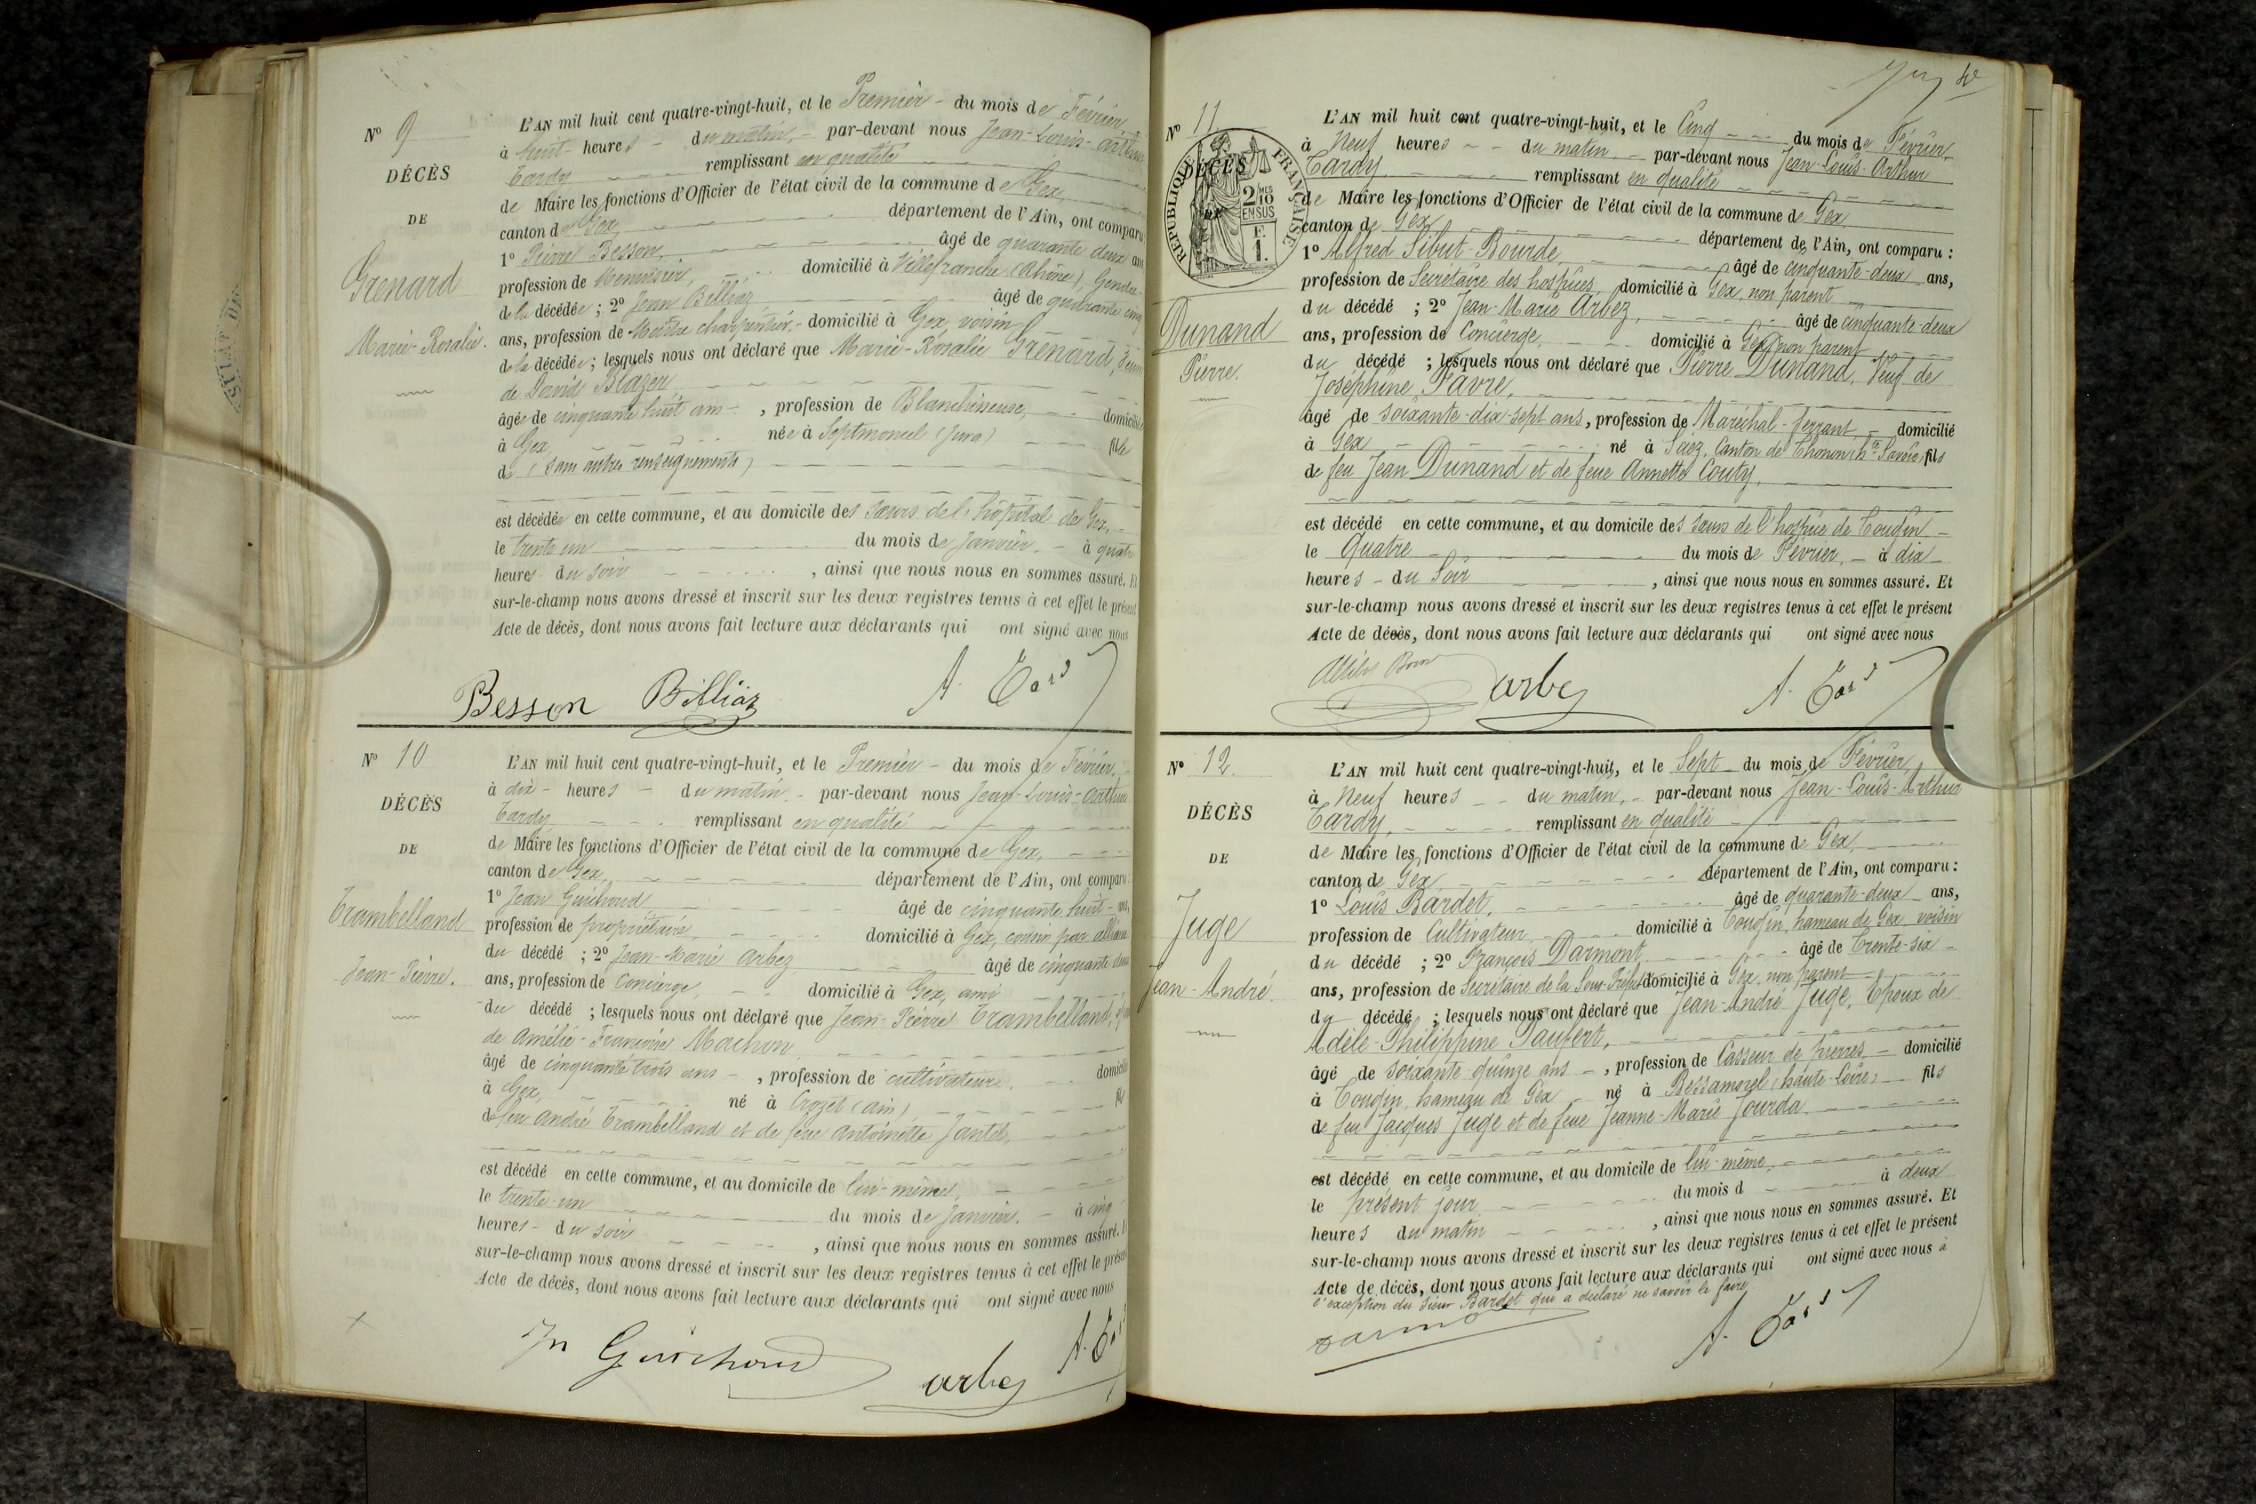 Nº 9
DÉCÈS
DE
Grenard
Marie-Rosalie.
L'AN mil huit cent quatre-vingt-huit, et le Premier - du mois de Février
à huit - heures - du matin, - par-devant nous Jean-Louis-Arthur
Tardy remplissant en qualité
de Maire les fonctions d'Officier de l'état civil de la commune de Gex,
canton de Gex, département de l'Ain, ont comparu
1º Pierre Besson, âgé de quarante deux ans
profession de Menuisier, domicilié à Villefranche (Rhône), Gendre
de la décédée ; 2º Jean Billiaz âgé de quarante cinq
ans, profession de Maître charpentier. - domicilié à Gex, voisin
de la décédée ; lesquels nous ont déclaré que Marie-Rosalie Grenard,
de David Blazer
âgée de cinquante huit ans - , profession de Blanchisseuse, domiciliée
à Gex née à Septmoncel (Jura) fille
de (sans autres renseignements)
est décédée en cette commune, et au domicile des sœurs de l'hôpital de Gex,
le trente un du mois de Janvier. - à quatre
heures du soir , ainsi que nous nous en sommes assuré. Et
sur-le-champ nous avons dressé et inscrit sur les deux registres tenus à cet effet le présent
Acte de décès, dont nous avons fait lecture aux déclarants qui ont signé avec nous
Besson Billiaz A. Tardy
Nº 10
DÉCÈS
DE
Trambelland
Jean-Pierre.
L'AN mil huit cent quatre-vingt-huit, et le Premier - du mois de Février.
à dix - heures - du matin. - par-devant nous Jean-Louis-Arthur
Tardy remplissant en qualité
de Maire les fonctions d'Officier de l'état civil de la commune de Gex,
canton de Gex, département de l'Ain, ont comparu :
1º Jean Guichoud âgé de cinquante huit - ans,
profession de propriétaire, domicilié à Gex, cousin par alliance
du décédé ; 2º Jean-Marie Arbez âgé de cinquante deux
ans, profession de Concierge, domicilié à Gex, ami
du décédé ; lesquels nous ont déclaré que Jean-Pierre Trambelland,
de Amélie-Françoise Machon
âgé de cinquante trois ans - , profession de cultivateur. domicilié
à Gex, né à Crozet (Ain) fils
de feu André Trambelland et de feue Antoinette Jantet,
est décédé en cette commune, et au domicile de lui-même,
le trente-un du mois de Janvier. - à cinq
heures - du soir , ainsi que nous nous en sommes assuré. Et
sur-le-champ nous avons dressé et inscrit sur les deux registres tenus à cet effet le présent
Acte de décès, dont nous avons fait lecture aux déclarants qui ont signé avec nous
Jn Guichoud Arbez A. Tardy
Nº 11
DÉCÈS
DE
RÉPUBLIQUE FRANÇAISE
2 MES
10
EN SUS
F.
1.
Dunand
Pierre.
L'AN mil huit cent quatre-vingt-huit, et le Cinq du mois de Février
à Neuf heures - - du matin. - par-devant nous Jean-Louis-Arthur
Tardy remplissant en qualité
de Maire les fonctions d'Officier de l'état civil de la commune de Gex,
canton de Gex, département de l'Ain, ont comparu :
1º Alfred Sibut-Bourde, âgé de cinquante-deux ans,
profession de Secrétaire des hospices, domicilié à Gex, non parent
du décédé ; 2º Jean-Marie Arbez, âgé de cinquante-deux
ans, profession de Concierge, domicilié à Gex, non parent
du décédé ; lesquels nous ont déclaré que Pierre Dunand, Veuf de
Joséphine Favre,
âgé de soixante-dix-sept ans, profession de Maréchal-ferrant, - domicilié
à Gex né à Sciez, Canton de Thonon, hte Savoie, fils
de feu Jean Dunand et de feue Annette Couty,
est décédé en cette commune, et au domicile des sœurs de l'hospice de Tougin -
le Quatre du mois de Février, - à dix -
heures - du Soir , ainsi que nous nous en sommes assuré. Et
sur-le-champ nous avons dressé et inscrit sur les deux registres tenus à cet effet le présent
Acte de décès, dont nous avons fait lecture aux déclarants qui ont signé avec nous
Arbez A. Tardy
Nº 12.
DÉCÈS
DE
Juge
Jean-André.
L'AN mil huit cent quatre-vingt-huit, et le Sept du mois de Février,
à Neuf heures - - du matin, - par-devant nous Jean-Louis-Arthur
Tardy, remplissant en qualité
de Maire les fonctions d'Officier de l'état civil de la commune de Gex
canton de Gex département de l'Ain, ont comparu :
1º Louis Bardet, âgé de quarante-deux ans,
profession de Cultivateur domicilié à Tougin, hameau de Gex, voisin
du décédé ; 2º François Darmont, âgé de Trente-six -
ans, profession de Secrétaire de la Sous-Préfre domicilié à Gex, non parent
du décédé ; lesquels nous ont déclaré que Jean-André Juge, Epoux de
Adèle-Philippine
âgé de soixante quinze ans - , profession de Casseur de pierres, - domicilié
à Tougin, hameau de Gex né à Bessamorel (haute-Loire) fils
de feu Jacques Juge et de feue Jeanne-Marie Jourda
est décédé en cette commune, et au domicile de lui-même,
le présent jour du mois d à deux
heures du matin , ainsi que nous nous en sommes assuré. Et
sur-le-champ nous avons dressé et inscrit sur les deux registres tenus à cet effet le présent
Acte de décès, dont nous avons fait lecture aux déclarants qui ont signé avec nous à
l'exception du sieur Bardet qui a déclaré ne savoir le faire
A. Tardy